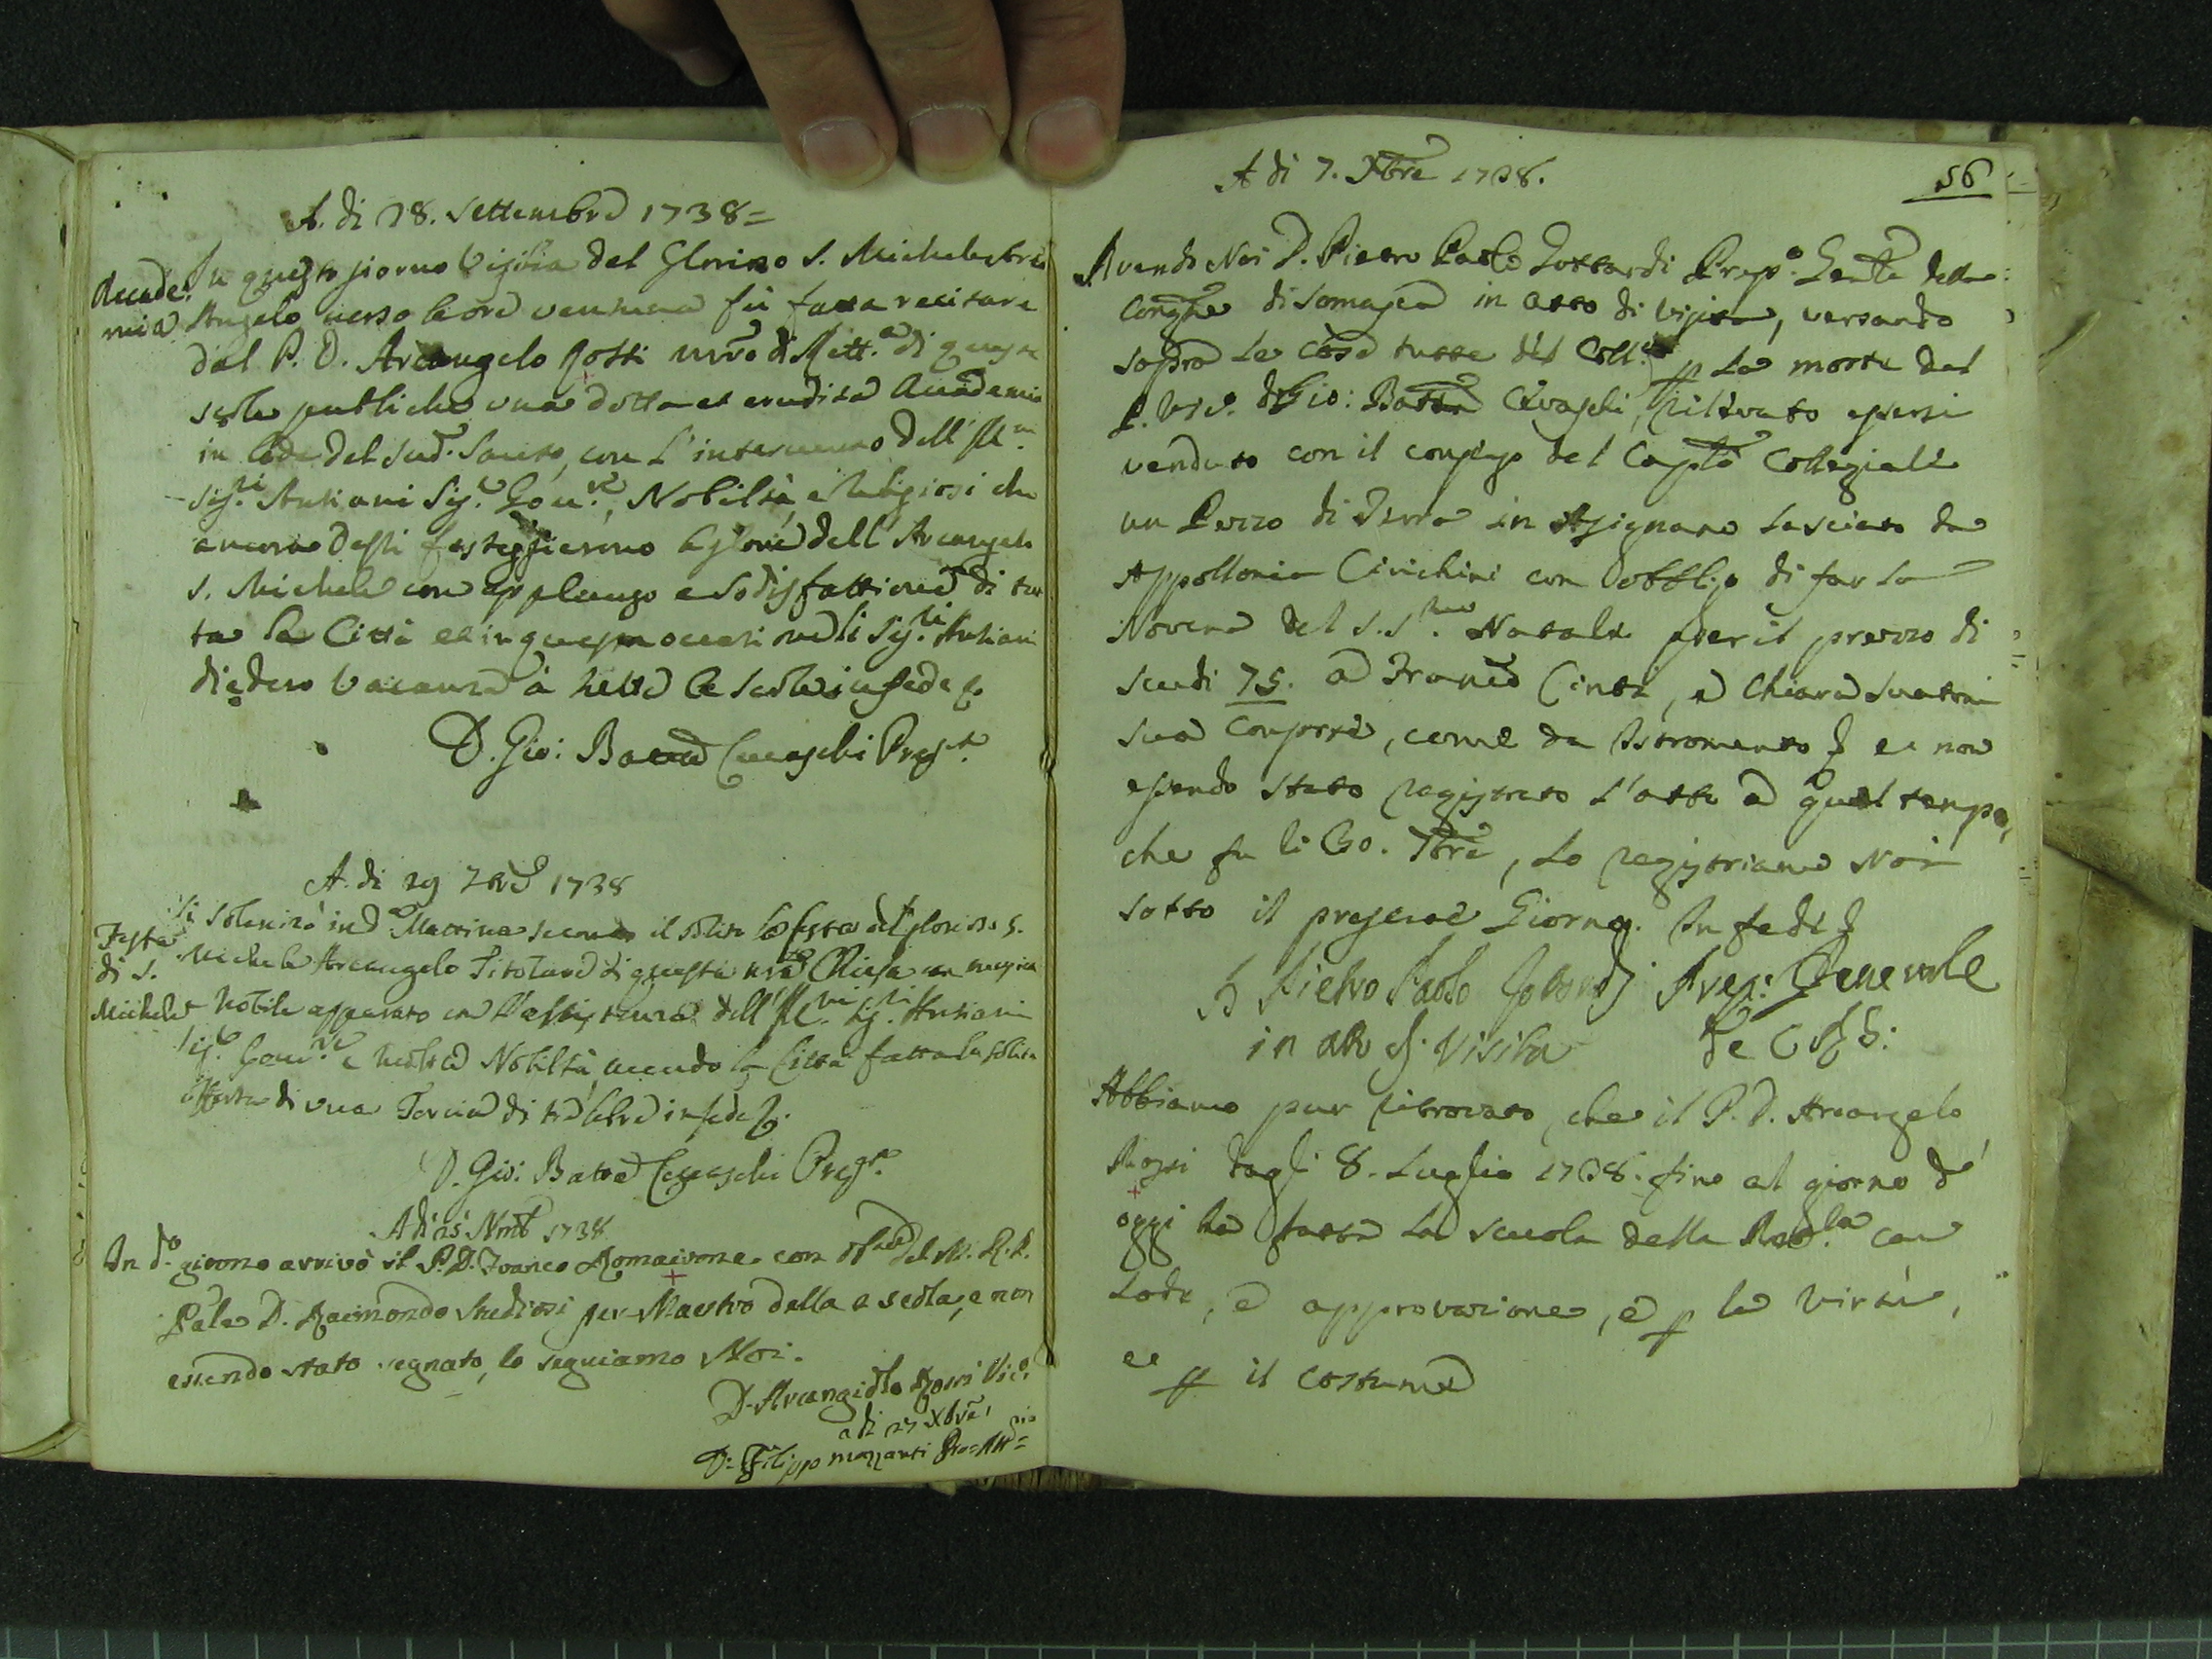 A. di 28. Settembre 1738=
Accade:
mia
In questo giorno Vigilia del Glorioso S. Michele Arc
Angelo verso le ore ventuna fù fatta recitare
dal P. D. Arcangelo Rossi nrõ di Rett.ª di queste
scole publiche una dotta et erudita Accademia
in lode del Sud.º Santo, con l'intervento dell' Ill.mi
Sig.ri Antiani Sig.r Gou.re, Nobiltà, e Religiosi che
ancora essi festeggierono le glorie dell' Arcangelo
S. Michele con applauso e sodisfattione di tut
ta la Città et in questa occasione li Sig.ri Antiani
diedero Vacanza à tutte le scole in fede &
D. Gio: Batta Cevaschi Prep.to
A. di 29 7bre 1738
Festa
di S.
Michele
Si solenizò in d.ª Mattina secondo il solito la festa del glorioso S.
Michele Arcangelo Titolare di questa nrã Chiesa con
Nobile apparato con l'assistenza dell' Ill.mi Sig.ri Antiani
Sig.r Gou.re e molta Nobiltà, avendo la Città fatta la solita
offerta di una Torcia di trè libre in fede &.
D. Gio: Batta Cevaschi Prep.to
A di 25 Nmb 1738
In d.º giorno arrivò il P. D. Franco Romairone con del M. R. P.
Pãle D. Raimondo Studiosi per Maestro della 2 scola, e non
essendo stato segnato, lo seguiamo Noi.
D. Arcangiolo Rossi Vic.º
a di 27 Xbre,
D. Filippo mozzanti Pro=Att.rio=
56
A di 7. Xbre 1738.
Avendo Noi D. Pietro Paolo Gottardi Prep.º Genle della
Congne di Somasca in atto di Visita, versando
sopra le cose tutte del Coll.º p la morte del
P. Vic.º D. Gio: Batta Cevaschi, rilevato essersi
venduto con il consenso del Caplo Collegiale
un Pezzo di Terra in Assignano lasciato da
Appollonia Cirichini con obbligo di far la
Novena del S.S.mo Natale per il prezzo di
scudi 75. a Franco Cinti, e Chiara
sua Consorte, come da Istromento & e non
essendo stato registrato l'atto a quel tempo,
che fu li 30. 7bre, lo registriamo Noi
sotto il presente Giorno. In fede &
D Pietro Paolo Gottardi Prep: Generale
in atto di Visita De C R S:
Abbiamo pur ritrovato, che il P. D. Arcangelo
Rossi dagli 8. Luglio 1738. fino al giorno d'
oggi ha fatto la scuola della Ret.ca con
lode, e approvazione, e p le virtù,
et p il costume